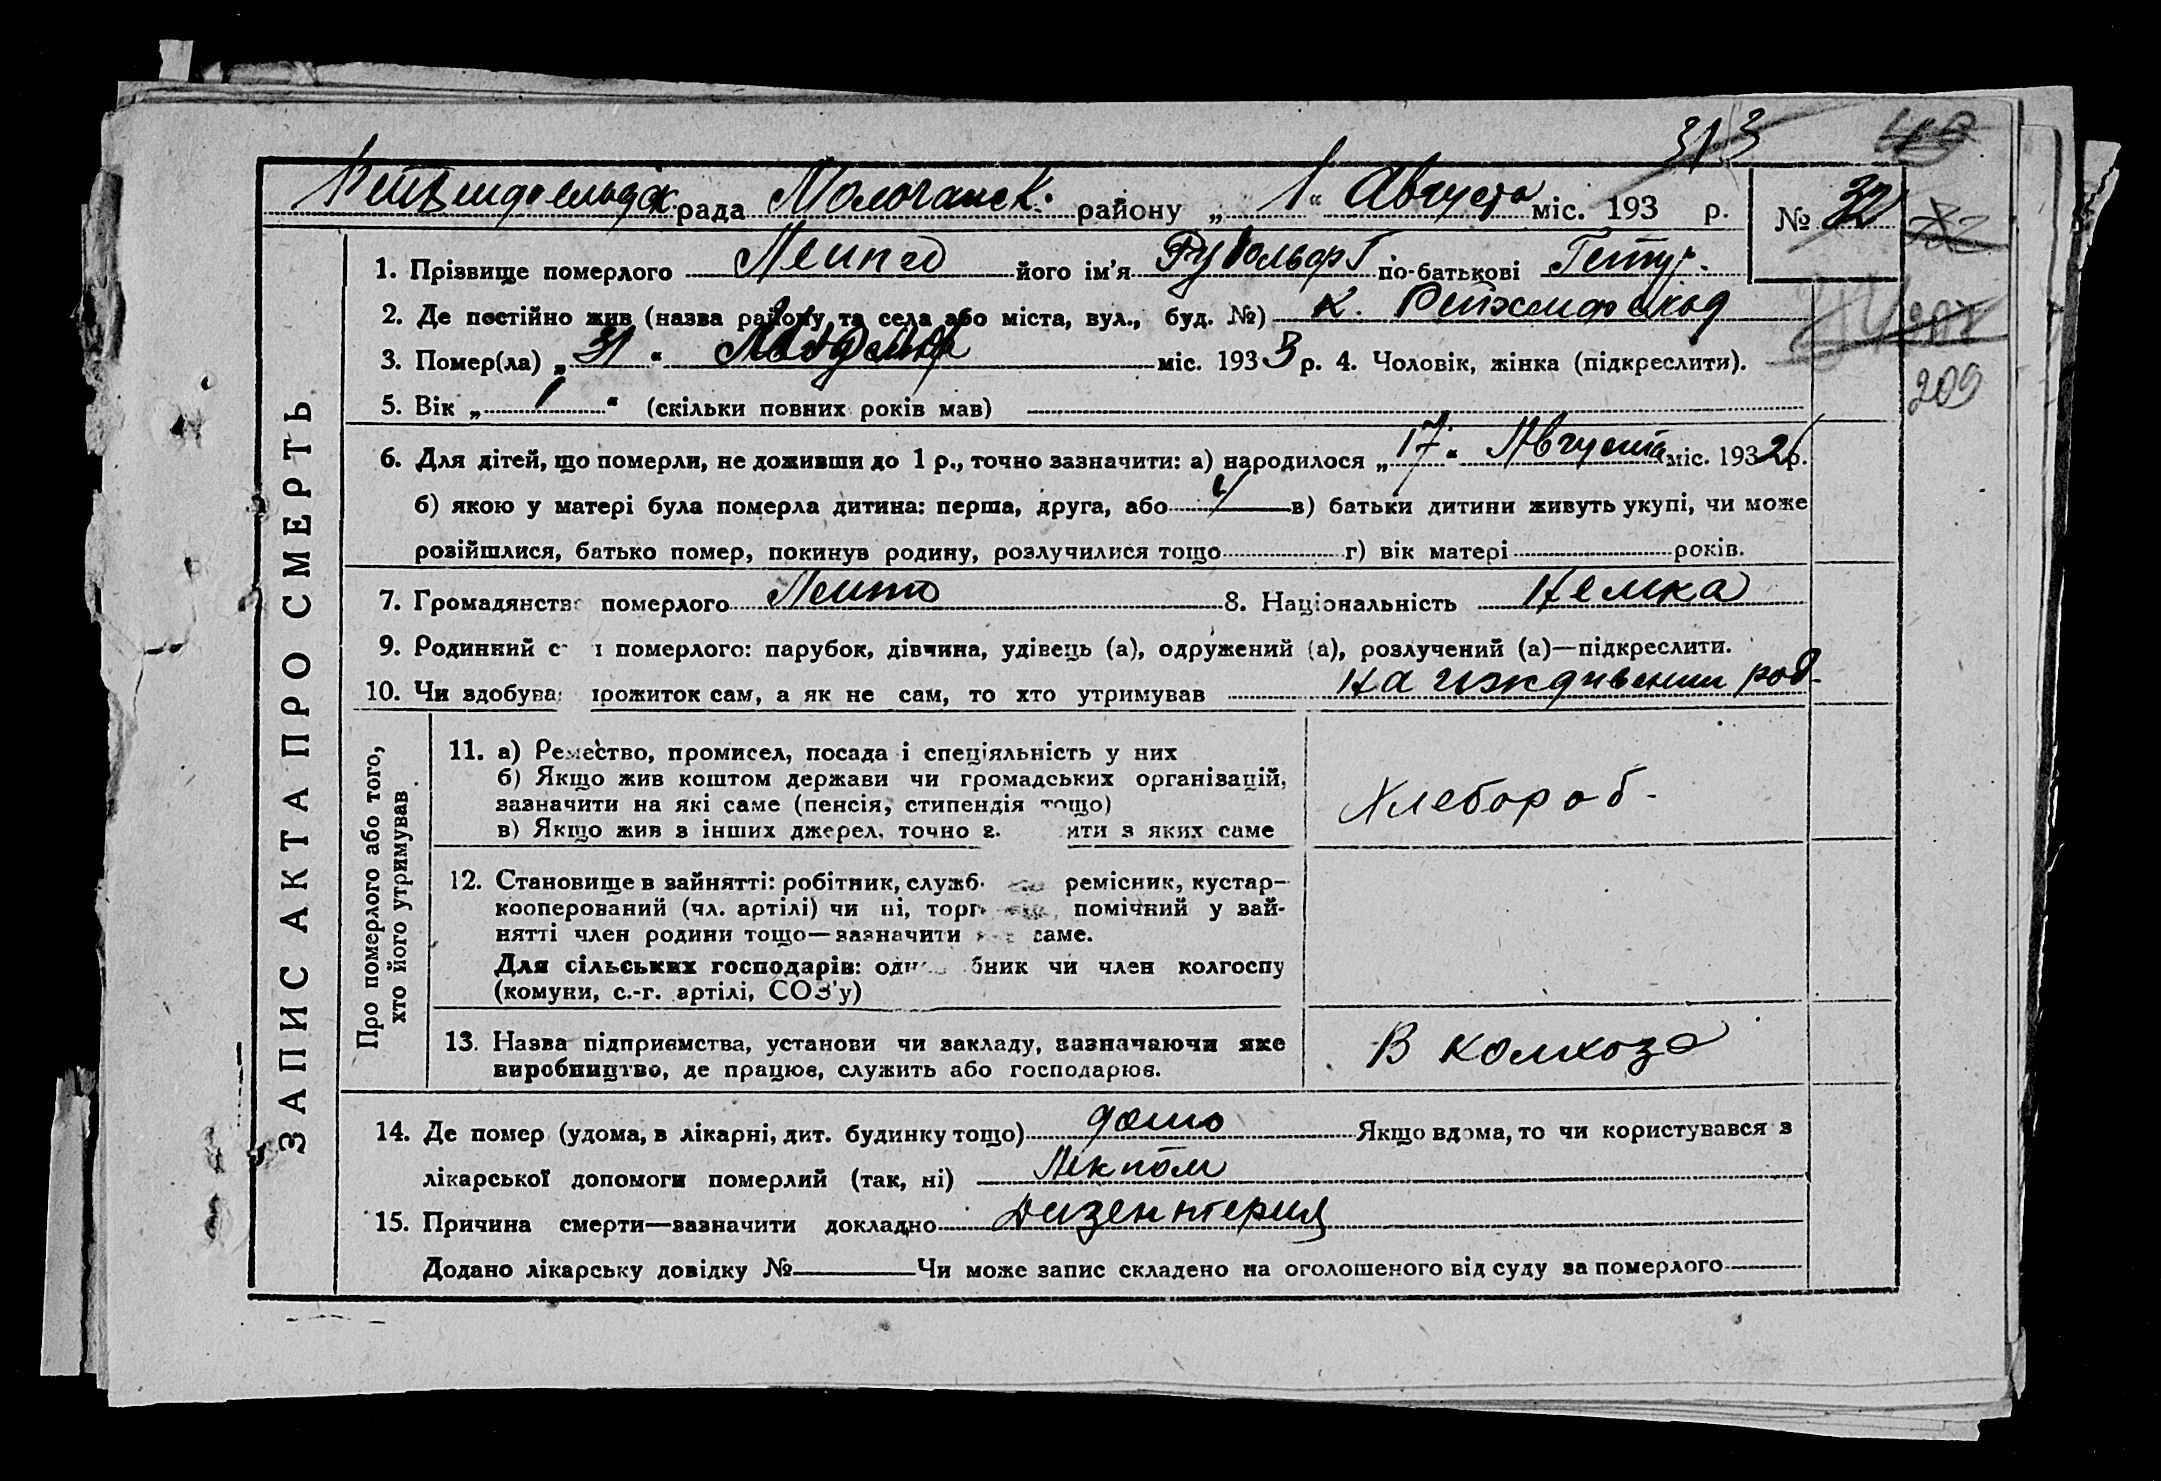 313
рада Молочанск. району „ 1 “ Августа міс. 193 р. № 32
1. Прізвище померлого його ім'я Рудольф по-батькові Петр.
2. Де постійно жив (назва району та села або міста, вул., буд. №) к. Рейхенфельд
3. Помер(ла) „ 31 “ міс. 193 3 р. 4. Чоловік, жінка (підкреслити).
209
5. Вік „ 1 “ (скільки повних років мав)
6. Для дітей, що померли, не доживши до 1 р., точно зазначити: а) народилося „ 17 “ Августа міс. 193 2 р.
б) якою у матері була померла дитина: перша, друга, або в) батьки дитини живуть укупі, чи може
розійшлися, батько помер, покинув родину, розлучилися тощо г) вік матері років.
7. Громадянство померлого 8. Національність Немка
9. Родинний померлого: парубок, дівчина, удівець (а), одружений (а), розлучений (а)—підкреслити.
10. Чи здобував прожиток сам, а як не сам, то хто утримував На иждивении род.
ЗАПИС АКТА ПРО СМЕРТЬ
Про померлого або того,
хто його утримував
11. а) Ремество, промисел, посада і спеціяльність у них
б) Якщо жив коштом держави чи громадських організацій,
зазначити на які саме (пенсія, стипендія тощо)
в) Якщо жив з інших джерел, точно з яких саме
Хлебороб.
12. Становище в зайнятті: робітник, служб. ремісник, кустар-
кооперований (чл. артілі) чи ні, торг помічний у зай-
нятті член родини тощо—зазначити саме.
Для сільських господарів: одн бник чи член колгоспу
(комуни, с.-г. артілі, СОЗ'у)
13. Назва підприємства, установи чи закладу, зазначаючи яке
виробництво, де працює, служить або господарює.
В колхозе
14. Де помер (удома, в лікарні, дит. будинку тощо) дома Якщо вдома, то чи користувався з
лікарської допомоги померлий (так, ні) Лекпом
15. Причина смерти—зазначити докладно Дизентерия
Додано лікарську довідку № Чи може запис складено на оголошеного від суду за померлого